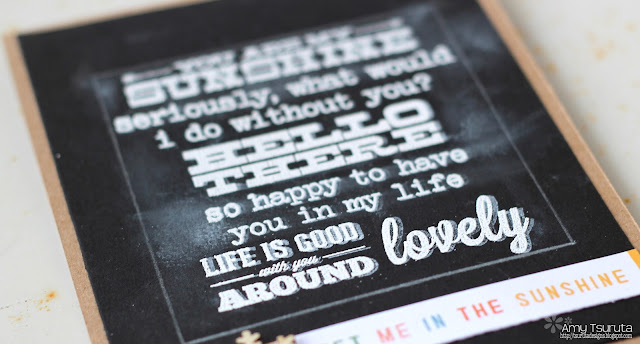 YOU ARE MY
SUNSHINE
seriously, what would
i do without you?
HELLO
THERE
so happy to have
you in my life
LIFE IS GOOD
with you
AROUND
lovely
ME IN THE SUNSHINE
Amy Tsuruta
http://tsurutadesigns.blogspot.com